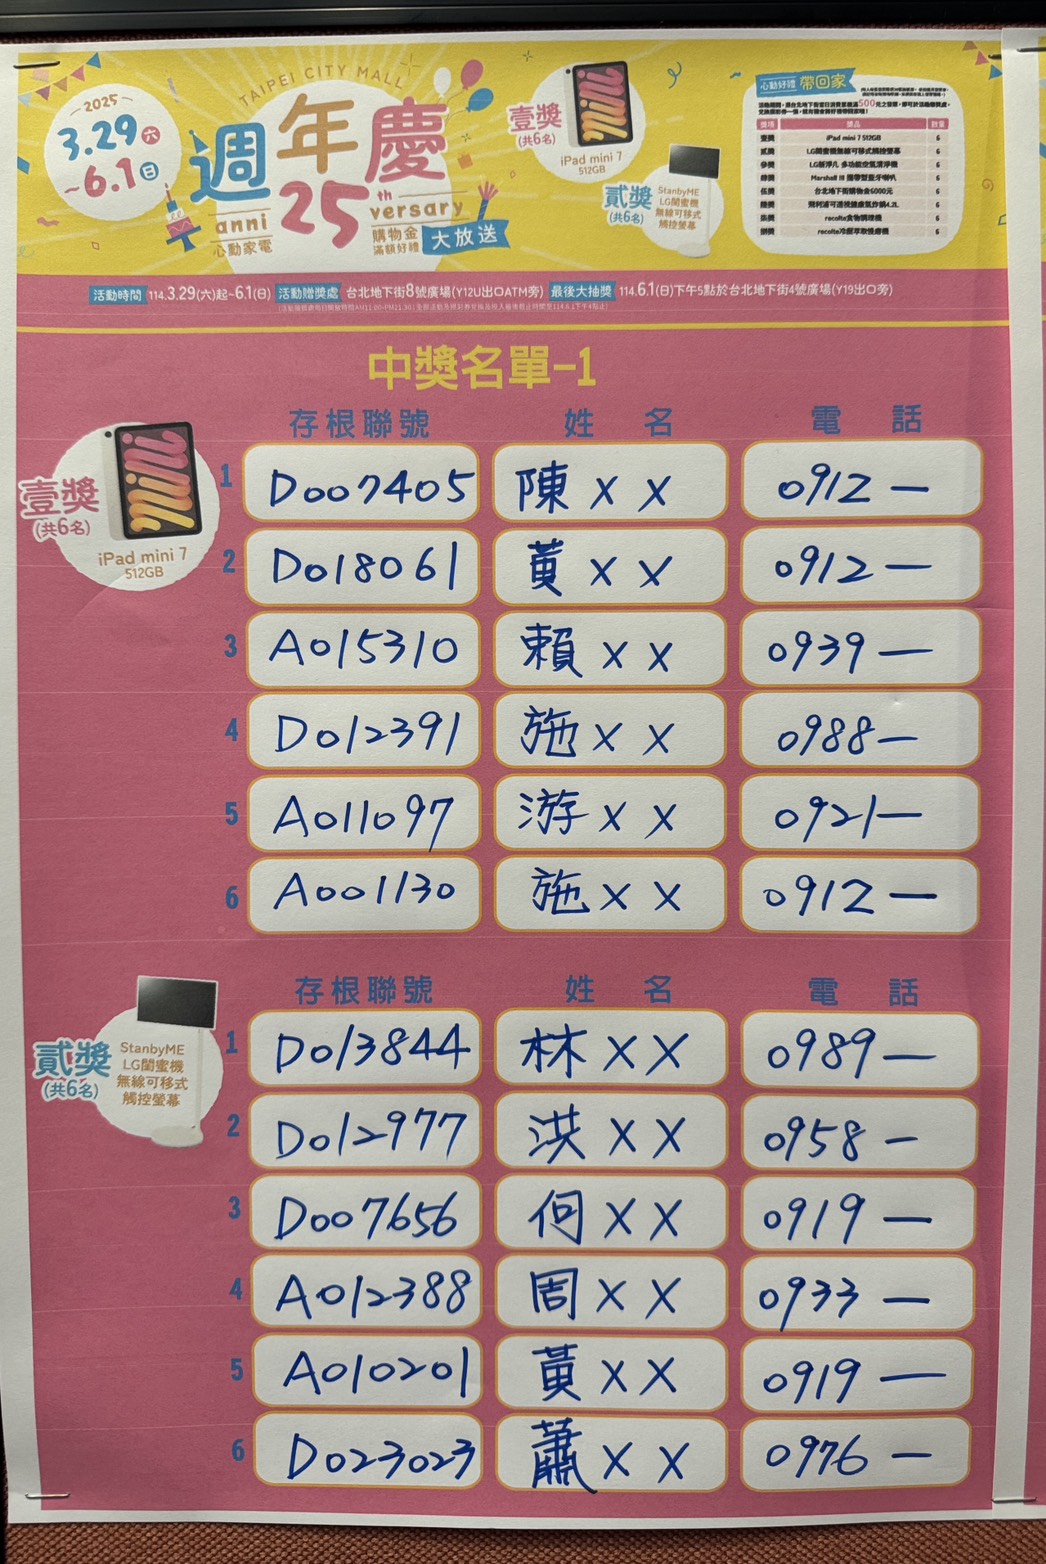 2025
3.29 六
~6.1 日
TAIPEI CITY MALL
週年慶
25th
anni versary
心動家電
購物金
滿額好禮
大放送
壹獎
(共6名)
mini
iPad mini 7
512GB
貳獎
(共6名)
StanbyME
LG閨蜜機
無線可移式
觸控螢幕
心動好禮 帶回家
獎項 獎品 數量
壹獎 iPad mini 7 512GB 6
貳獎 LG閨蜜機無線可移式觸控螢幕 6
參獎 LG新淨几 多功能空氣清淨機 6
肆獎 Marshall III 攜帶型藍牙喇叭 6
伍獎 台北地下街購物金6000元 6
陸獎 飛利浦可透視健康氣炸鍋4.2L 6
柒獎 recolte食物調理機 6
捌獎 recolte冷部萃取慢磨機 6
活動時間 114.3.29(六)起~6.1(日) 活動贈獎處 台北地下街8號廣場(Y12U出口ATM旁) 最後大抽獎 114.6.1(日)下午5點於台北地下街4號廣場(Y19出口旁)
中獎名單-1
存根聯號 姓名 電話
壹獎
(共6名)
mini
iPad mini 7
512GB
1 D007405 陳×× 0912—
2 D018061 黃×× 0912—
3 A015310 賴×× 0939—
4 D012391 施×× 0988—
5 A011097 游×× 0921—
6 A001130 施×× 0912—
存根聯號 姓名 電話
貳獎
(共6名)
StanbyME
LG閨蜜機
無線可移式
觸控螢幕
1 D013844 林×× 0989—
2 D012977 洪×× 0958—
3 D007656 何×× 0919—
4 A012388 周×× 0933—
5 A010201 黃×× 0919—
6 D023023 蕭×× 0976—